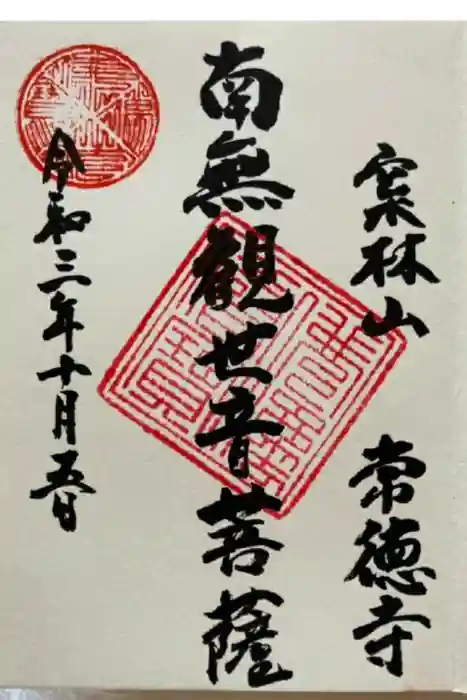 栗林山 常徳寺
南無観世音菩薩
令和三年十月五日